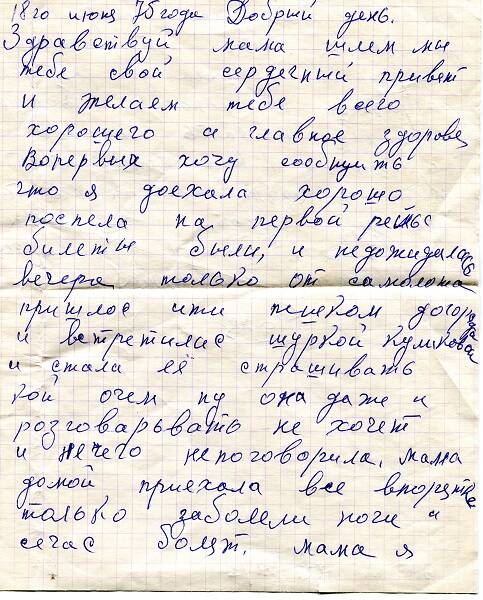 18го июня 75 года Добрый день.
Здравствуй мама шлем мы
тебе свой сердечный привет
и желаем тебе всего
хорошего а главное здоровя
Вопервых хочу сообщить
что я доехала хорошо
поспела на первой рейс
билеты были, и недожидалась
вечера только от самолета
пришлос ити пешком догорода
и встретилас шуркой куликовай
и стала её страшивать
кой очем ну она даже и
розговарьвать не хочет
и нечего непоговорила, мама
домой приехала все впорятке
только заболели ноги и
сечас болят. мама я